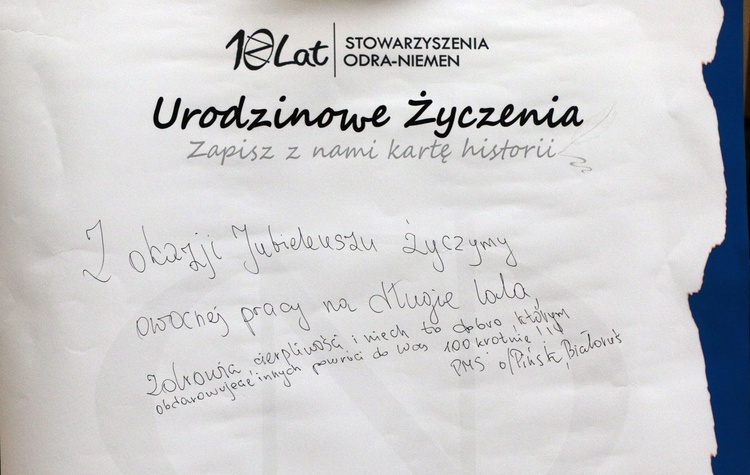 10 Lat STOWARZYSZENIA
ODRA-NIEMEN
Urodzinowe Życzenia
Zapisz z nami kartę historii
Z okazji Jubileuszu życzymy
owocnej pracy na długie lata,
zdrowia cierpliwości i niech to dobro którym
obdarowujecie innych powróci do Was 100 krotnie!!!
PMS o/Pińsk, Białoruś